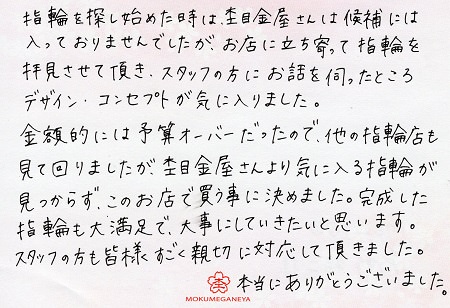 指輪を探し始めた時は、杢目金屋さんは候補には
入っておりませんでしたが、お店に立ち寄って指輪を
拝見させて頂き、スタッフの方にお話を伺ったところ
デザイン・コンセプトが気に入りました。
金額的には予算オーバーだったので、他の指輪店も
見て回りましたが、杢目金屋さんより気に入る指輪が
見つからず、このお店で買う事に決めました。完成した
指輪も大満足で、大事にしていきたいと思います。
スタッフの方も皆様すごく親切に対応して頂きました。
本当にありがとうございました。
MOKUMEGANEYA